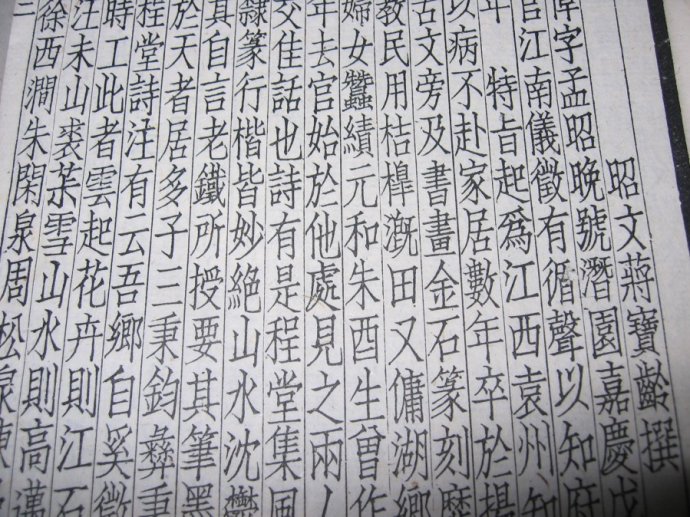 昭文蔣寶齡撰
字孟昭晚號潛園嘉慶戊
官江南儀徵有循聲以知府
年 特旨起爲江西袁州知
以病不赴家居數年卒於揚
古文旁及書畫金石篆刻靡
教民用桔槹漑田又傭湖鄉
婦女蠶績元和朱酉生曾作
年去官始於他處見之兩人
交佳話也詩有是程堂集風
隸篆行楷皆妙絶山水沈鬱
其自言老鐵所授要其筆墨
於天者居多子三秉鈞彝秉
程堂詩注有云吾鄉自奚徵
時工此者雲起花卉則江石
江未山裘茶雪山水則高邁
徐西澗朱閑泉周松泉陳
二